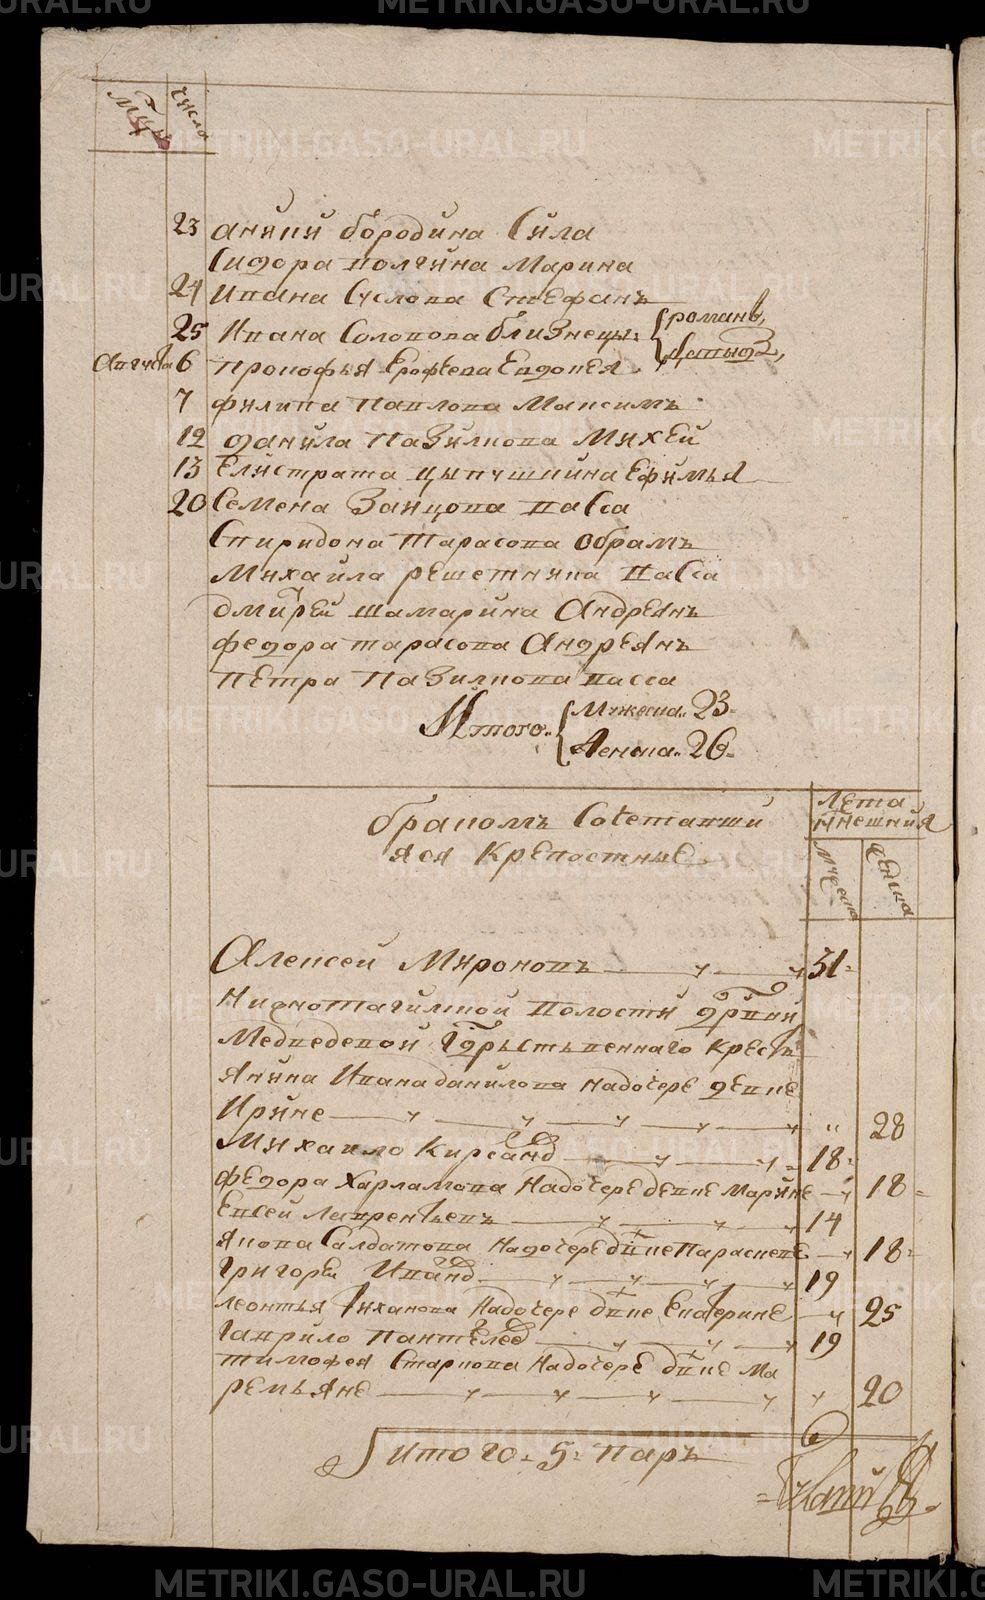 METRIKI.GASO-URAL.RU
мцы
числа
23 анния бородина Сила
Сидора полчина Марина
24 Ивана Суслова Стефанъ
25 Ивана Солопова близнецы: романъ,
давыдъ,
Августа 6 Прокофья Ерофеева Евдокея
7 филипа Павлова Максимъ
12 данила Пазилкова Михей
13 Елистрата Цыпушкина Ефимья
20 Семена Зайцова Васса
Спиридона Тарасова Обрамъ
Михаила решетника Васса
дмитрей шамарина Андреянъ
федора тарасова Андреянъ
Петра Пазилкова васса
Итого. Мужеска. 23.
Женска. 26.
бракомъ Сочетавши
яся Крепостные
Лета
нынешния
мужеска
женска
Алексей Мироновъ 31
Нижнотагилской волости дрвни
Медведевой Гдрьственнаго крестъ
янина Ивана данилова надочере девке
Ирине 28
Михаило Кирсанд 18
федора Харламова Надочере девке Марине 18
Евсей лаврентьевъ 14
якова Салдатова надочере двке Парасковье 18
григорей Иванд 19
леонтья Тиханова Надочере двке Екатерине 25
гаврило Пантелед 19
тимофея Старкова Надочере двке Ма
ремьяне 20
итого 5 паръ